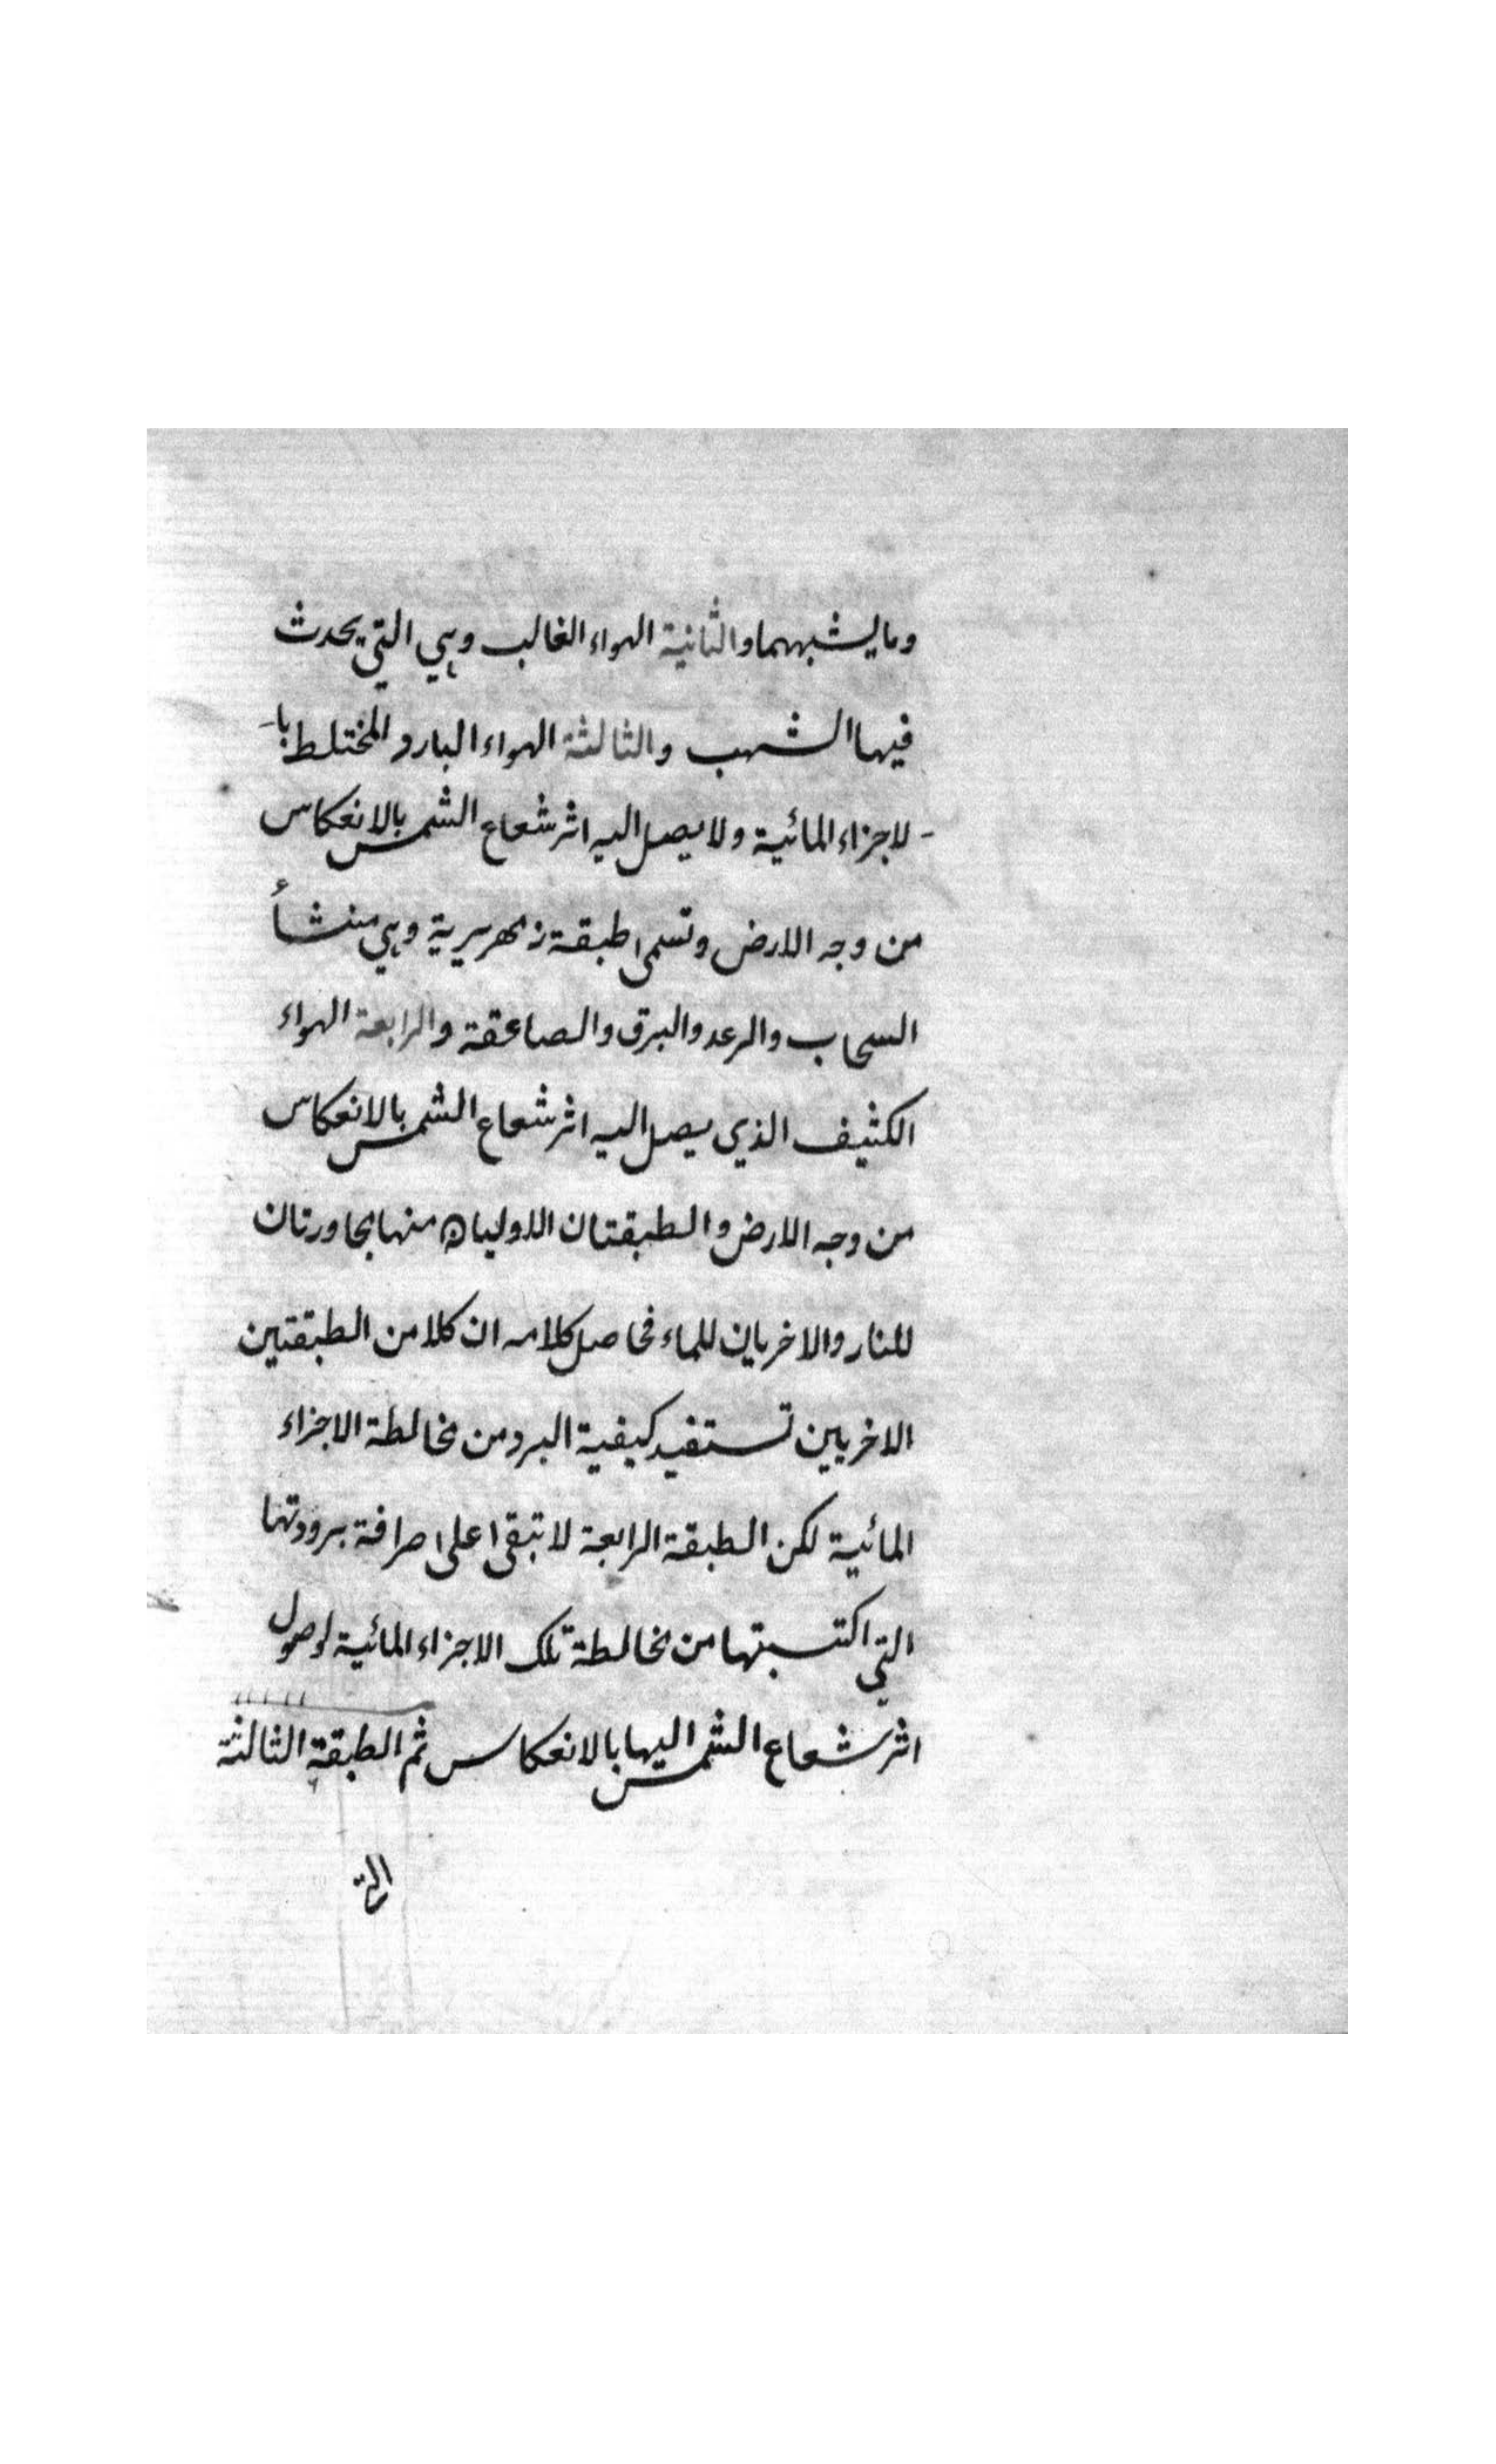 وما يشبههما والثانية الهواء الغالب وهي التي يحدث
فيها الشهب والثالثة الهواء البارد المختلط با-
-لاجزاء المائية ولا يصل اليه اثر شعاع الشمس بالانعكاس
من وجه الارض وتسمى طبقة زمهريرية وهي منشأ
السحاب والرعد والبرق والصاعقة والرابعة الهواء
الكثيف الذي يصل اليه اثر شعاع الشمس بالانعكاس
من وجه الارض والطبقتان الاوليان منها مجاورتان
للنار والاخريان للماء فحاصل كلامه ان كلا من الطبقتين
الاخريين تستفيد كيفية البرد من مخالطة الاجزاء
المائية لكن الطبقة الرابعة لا تبقى على صرافة برودتها
التي اكتسبتها من مخالطة تلك الاجزاء المائية لوصول
اثر شعاع الشمس اليها بالانعكاس ثم الطبقة الثالثة
التي